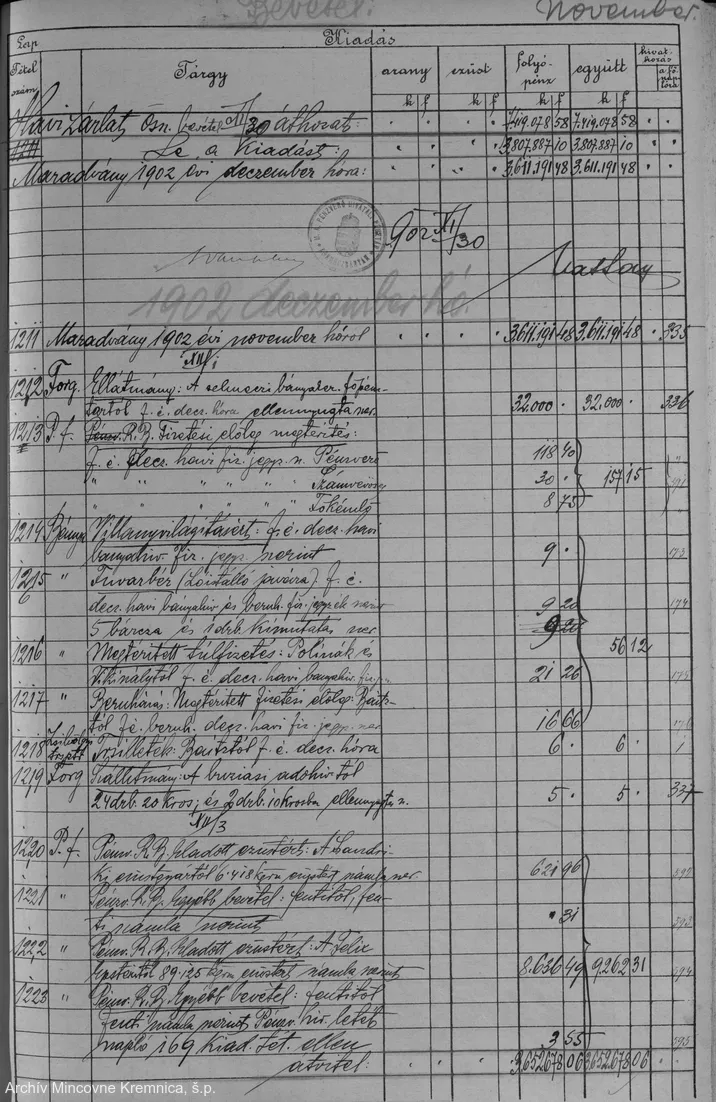 Bevétel. November.
Lap Kiadás hivatkozás
Tétel szám Tárgy arany ezüst folyópénz együtt a főnaplóra
k f k f k f k f
Havi zárlat Ösn. bevétel XI/30 áthozat: 7,419.078 58 7,419.078 58
1211 Le a Kiadást: 3.807.887 10 3.807.887 10
Maradvány 1902 évi deczember hóra: 3.611.191 48 3.611.191 48
902 XI/30
1902 deczember hó.
1211 Maradvány 1902 évi november hóról 3.611.191 48 3.611.191 48 335
XII/1
1212 Forg. Ellátmány: A selmeczi bányaker. főpénz-
tártól f. é. decz. hóra ellennyugta szer. 32.000 32.000 336
1213 P. f. Pénzv. R. R. Fizetési előleg megtérítés:
f. é. decz. havi fiz. jegyz. sz. Pénzverő 118 40
" " " " " " Számvevős. 30 157 15
" " " " " " Főkémlő 8 75
1214 Bánya Villanyvilágításért: f. é. decz. havi
bányahiv. fiz. jegyz. szerint 9 173
1215 " Fuvarbér (Lóistálló javára) f. é.
decz. havi bányahiv és beruh. fiz. jegyzék szerint 9 20 174
5 bárcza és 1 drb. kimutatás sz. 9 20
1216 " Megtérített túlfizetés: Polinák és 56 12
f. é. decz. havi bányahiv. fiz. j. 21 26
1217 " Beruházás: Megtérített fizetési előleg: Baitz-
tól f. é. beruh. decz. havi fiz. jegyz. szer. 16 66
1218 Illeték: Baitztól f. é. decz. hóra 6 6 1
1219 Forg Szállítmány: A buziási adóhiv.tól
24 drb. 20 kros; és 2 drb. 10 krosba ellennyugta sz. 5 5 337
XII/3
1220 P. f. Pénzv. R. R. Eladott ezüstért: A Sandri-
ki ezüstgyártól 6.418 kgrm ezüstért számla szer. 621 96
1221 " Pénzv. R. R. Egyébb bevétel: fentitől, fen-
ti számla szerint 31
1222 " Pénzv. R. R. Eladott ezüstért: A Felix
Epsteintól 89.125 kgrm ezüstért számla szerint 8.636 49 9262 31
1223 " Pénzv. R. R. Egyébb bevétel: fentitől
fenti számla szerint Pénzv. hiv. letét
napló 169 Kiad. tét. ellen 3 55
átvitel: 3,652.678 06 3,652.678 06
Archív Mincovne Kremnica, š.p.